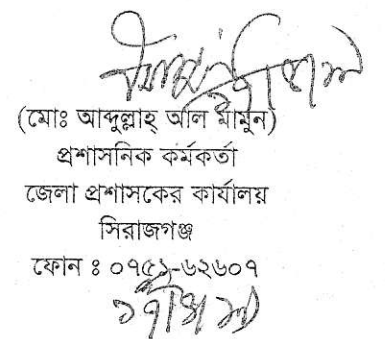 (মোঃ আব্দুল্লাহ্ আল মামুন)
প্রশাসনিক কর্মকর্তা
জেলা প্রশাসকের কার্যালয়
সিরাজগঞ্জ
ফোন ঃ ০৭৫১-৬২৬০৭